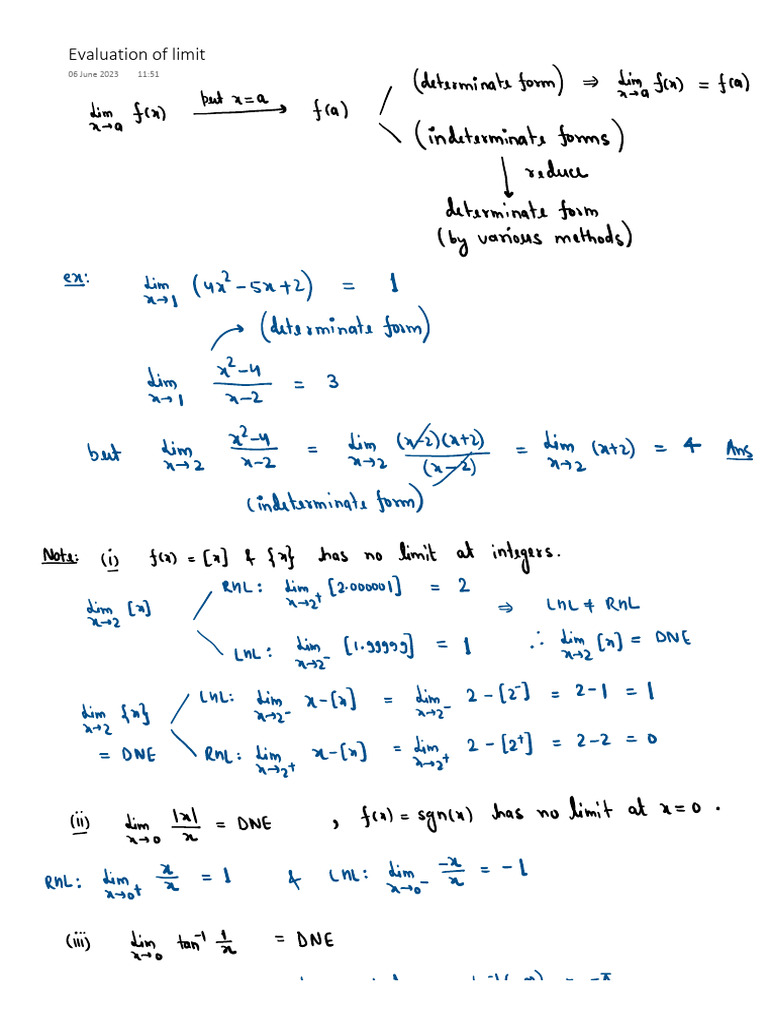 Evaluation of limit
06 June 2023 11:51
lim x→a f(x) put x=a → f(a) (determinate form) ⇒ lim x→a f(x) = f(a)
(indeterminate forms)
↓ reduce
determinate form
(by various methods)
ex: lim x→1 (4x²-5x+2) = 1
→ (determinate form)
lim x→1 x²-4 / x-2 = 3
but lim x→2 x²-4 / x-2 = lim x→2 (x-2)(x+2) / (x-2) = lim x→2 (x+2) = 4 Ans
(indeterminate form)
Note: (i) f(x) = [x] & {x} has no limit at integers.
lim x→2 [x] RHL: lim x→2⁺ [2.000001] = 2 ⇒ LHL ≠ RHL
LHL: lim x→2⁻ [1.99999] = 1 ∴ lim x→2 [x] = DNE
lim x→2 {x} LHL: lim x→2⁻ x-[x] = lim x→2⁻ 2-[2⁻] = 2-1 = 1
= DNE RHL: lim x→2⁺ x-[x] = lim x→2⁺ 2-[2⁺] = 2-2 = 0
(ii) lim x→0 |x|/x = DNE , f(x) = sgn(x) has no limit at x=0.
RHL: lim x→0⁺ x/x = 1 & LHL: lim x→0⁻ -x/x = -1
(iii) lim x→0 tan⁻¹ 1/x = DNE